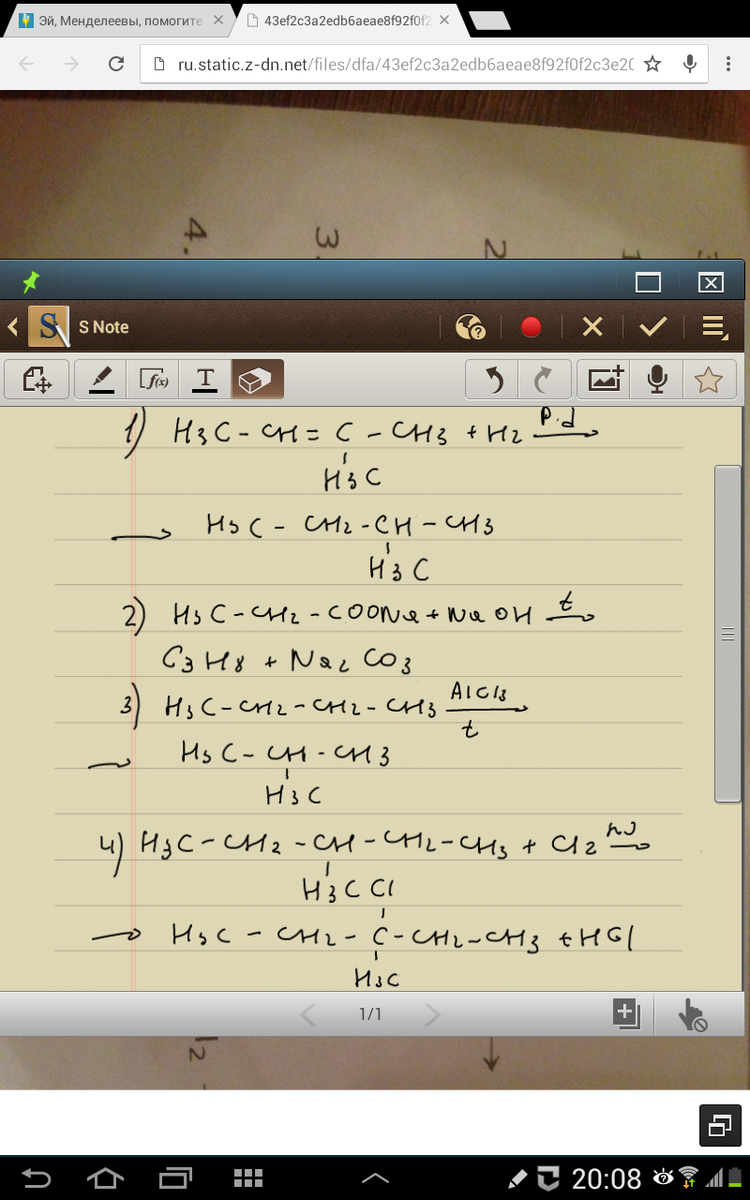 Эй, Менделеевы, помогите
43ef2c3a2edb6aeae8f92f0f2
ru.static.z-dn.net/files/dfa/43ef2c3a2edb6aeae8f92f0f2c3e20
4.
3.
2
S Note
f(x)
T
1) H3C - CH = C - CH3 + H2 Pd
H3C
H3C - CH2 - CH - CH3
H3C
2) H3C - CH2 - COONa + NaOH t
C3H8 + Na2CO3
3) H3C - CH2 - CH2 - CH3 AlCl3
t
H3C - CH - CH3
H3C
4) H3C - CH2 - CH - CH2 - CH3 + Cl2 hν
H3C Cl
H3C - CH2 - C - CH2 - CH3 + HCl
H3C
1/1
20:08